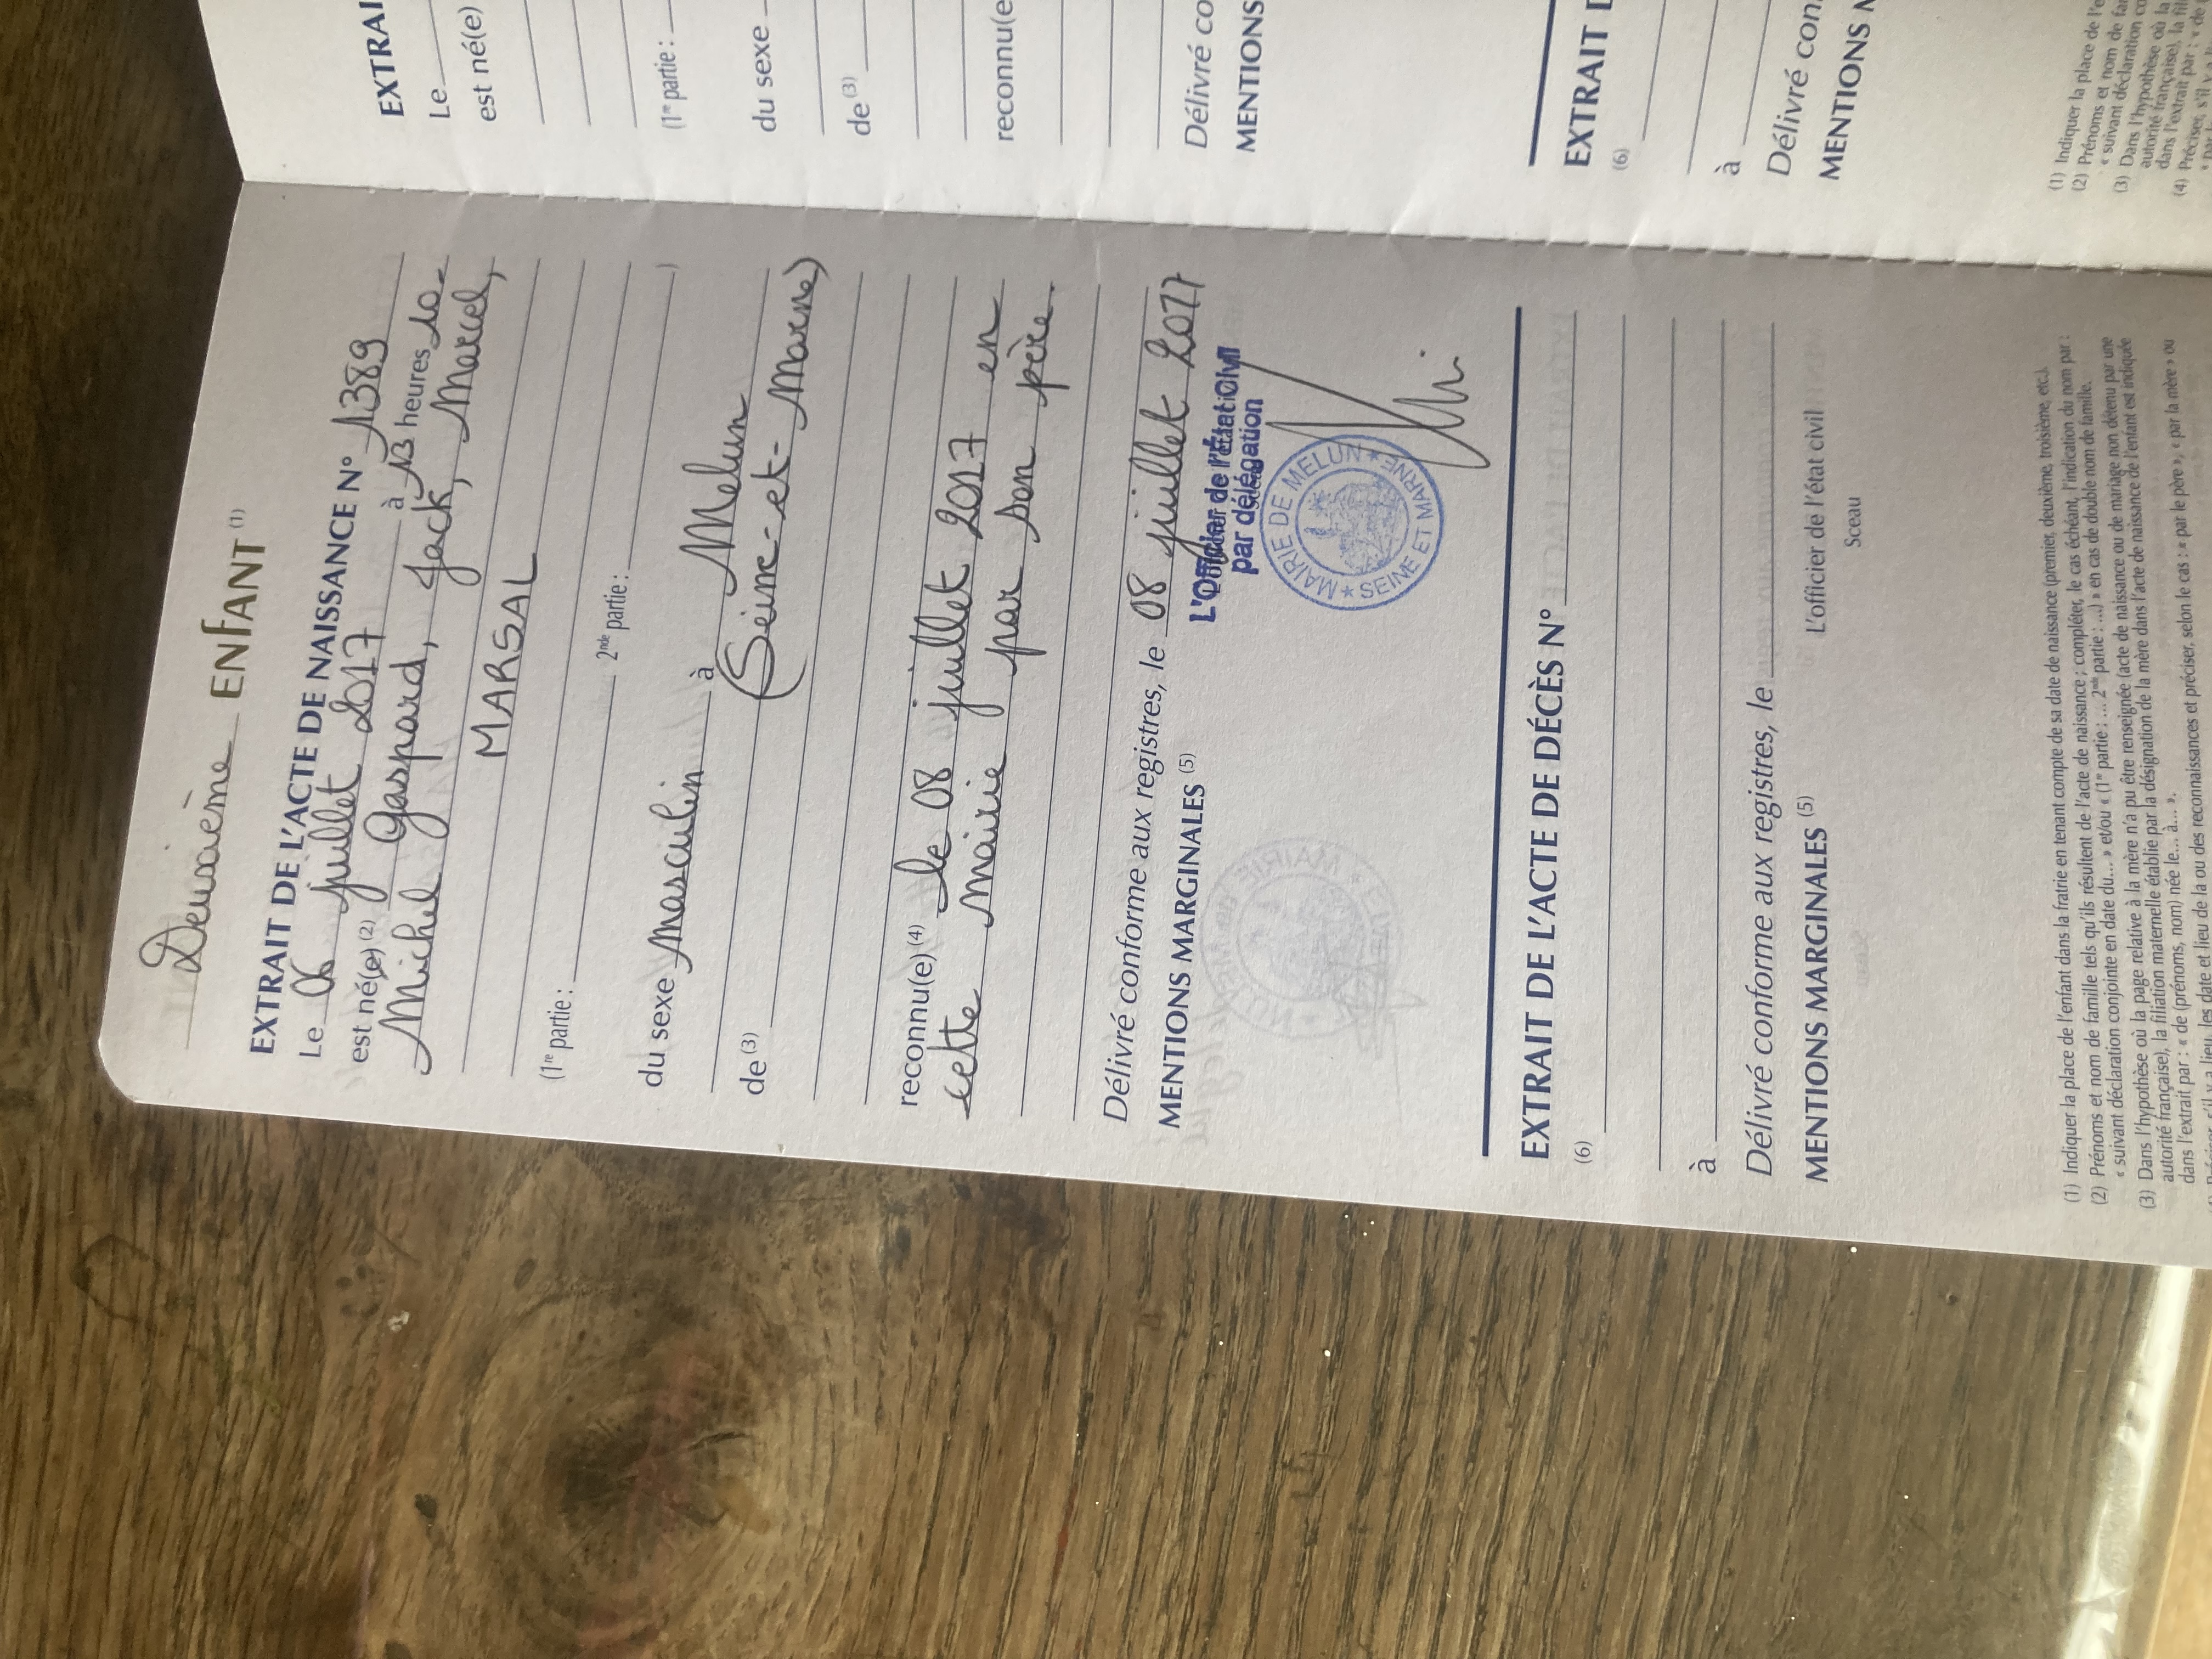 Deuxième ENFANT (1)
EXTRAIT DE L'ACTE DE NAISSANCE N° 1389
Le 06 juillet 2017 à 13 heures 10.
est né(e) (2) Gaspard, Jack, Marcel,
Michel MARSAL
(1re partie : 2nde partie : )
du sexe masculin à Melun
(Seine-et-Marne)
de (3)
reconnu(e) (4) le 08 juillet 2017 en
cette mairie par son père.
Délivré conforme aux registres, le 08 juillet 2017
MENTIONS MARGINALES (5)
L'Officier de l'État Civil
par délégation
MAIRIE DE MELUN ★ SEINE ET MARNE ★
EXTRAIT DE L'ACTE DE DÉCÈS N°
(6)
à
Délivré conforme aux registres, le
MENTIONS MARGINALES (5)
L'officier de l'état civil
Sceau
(1) Indiquer la place de l'enfant dans la fratrie en tenant compte de sa date de naissance (premier, deuxième, troisième, etc.).
(2) Prénoms et nom de famille tels qu'ils résultent de l'acte de naissance ; compléter, le cas échéant, l'indication du nom par :
« suivant déclaration conjointe en date du... » et/ou « (1re partie : ... 2nde partie : ...) » en cas de double nom de famille.
(3) Dans l'hypothèse où la page relative à la mère n'a pu être renseignée (acte de naissance ou de mariage non détenu par une
autorité française), la filiation maternelle établie par la désignation de la mère dans l'acte de naissance de l'enfant est indiquée
dans l'extrait par : « de (prénoms, nom) née le... à... ».
s'il y a lieu, les date et lieu de la ou des reconnaissances et préciser, selon le cas : « par le père », « par la mère » ou
EXTRAI
Le
est né(e)
(1re partie :
du sexe
de (3)
reconnu(e
Délivré co
MENTIONS
EXTRAIT D
(6)
à
Délivré con
MENTIONS M
(1) Indiquer la place de l'e
(2) Prénoms et nom de fam
« suivant déclaration co
(3) Dans l'hypothèse où la
autorité française), la fil
dans l'extrait par : « de
(4) Préciser, s'il y a